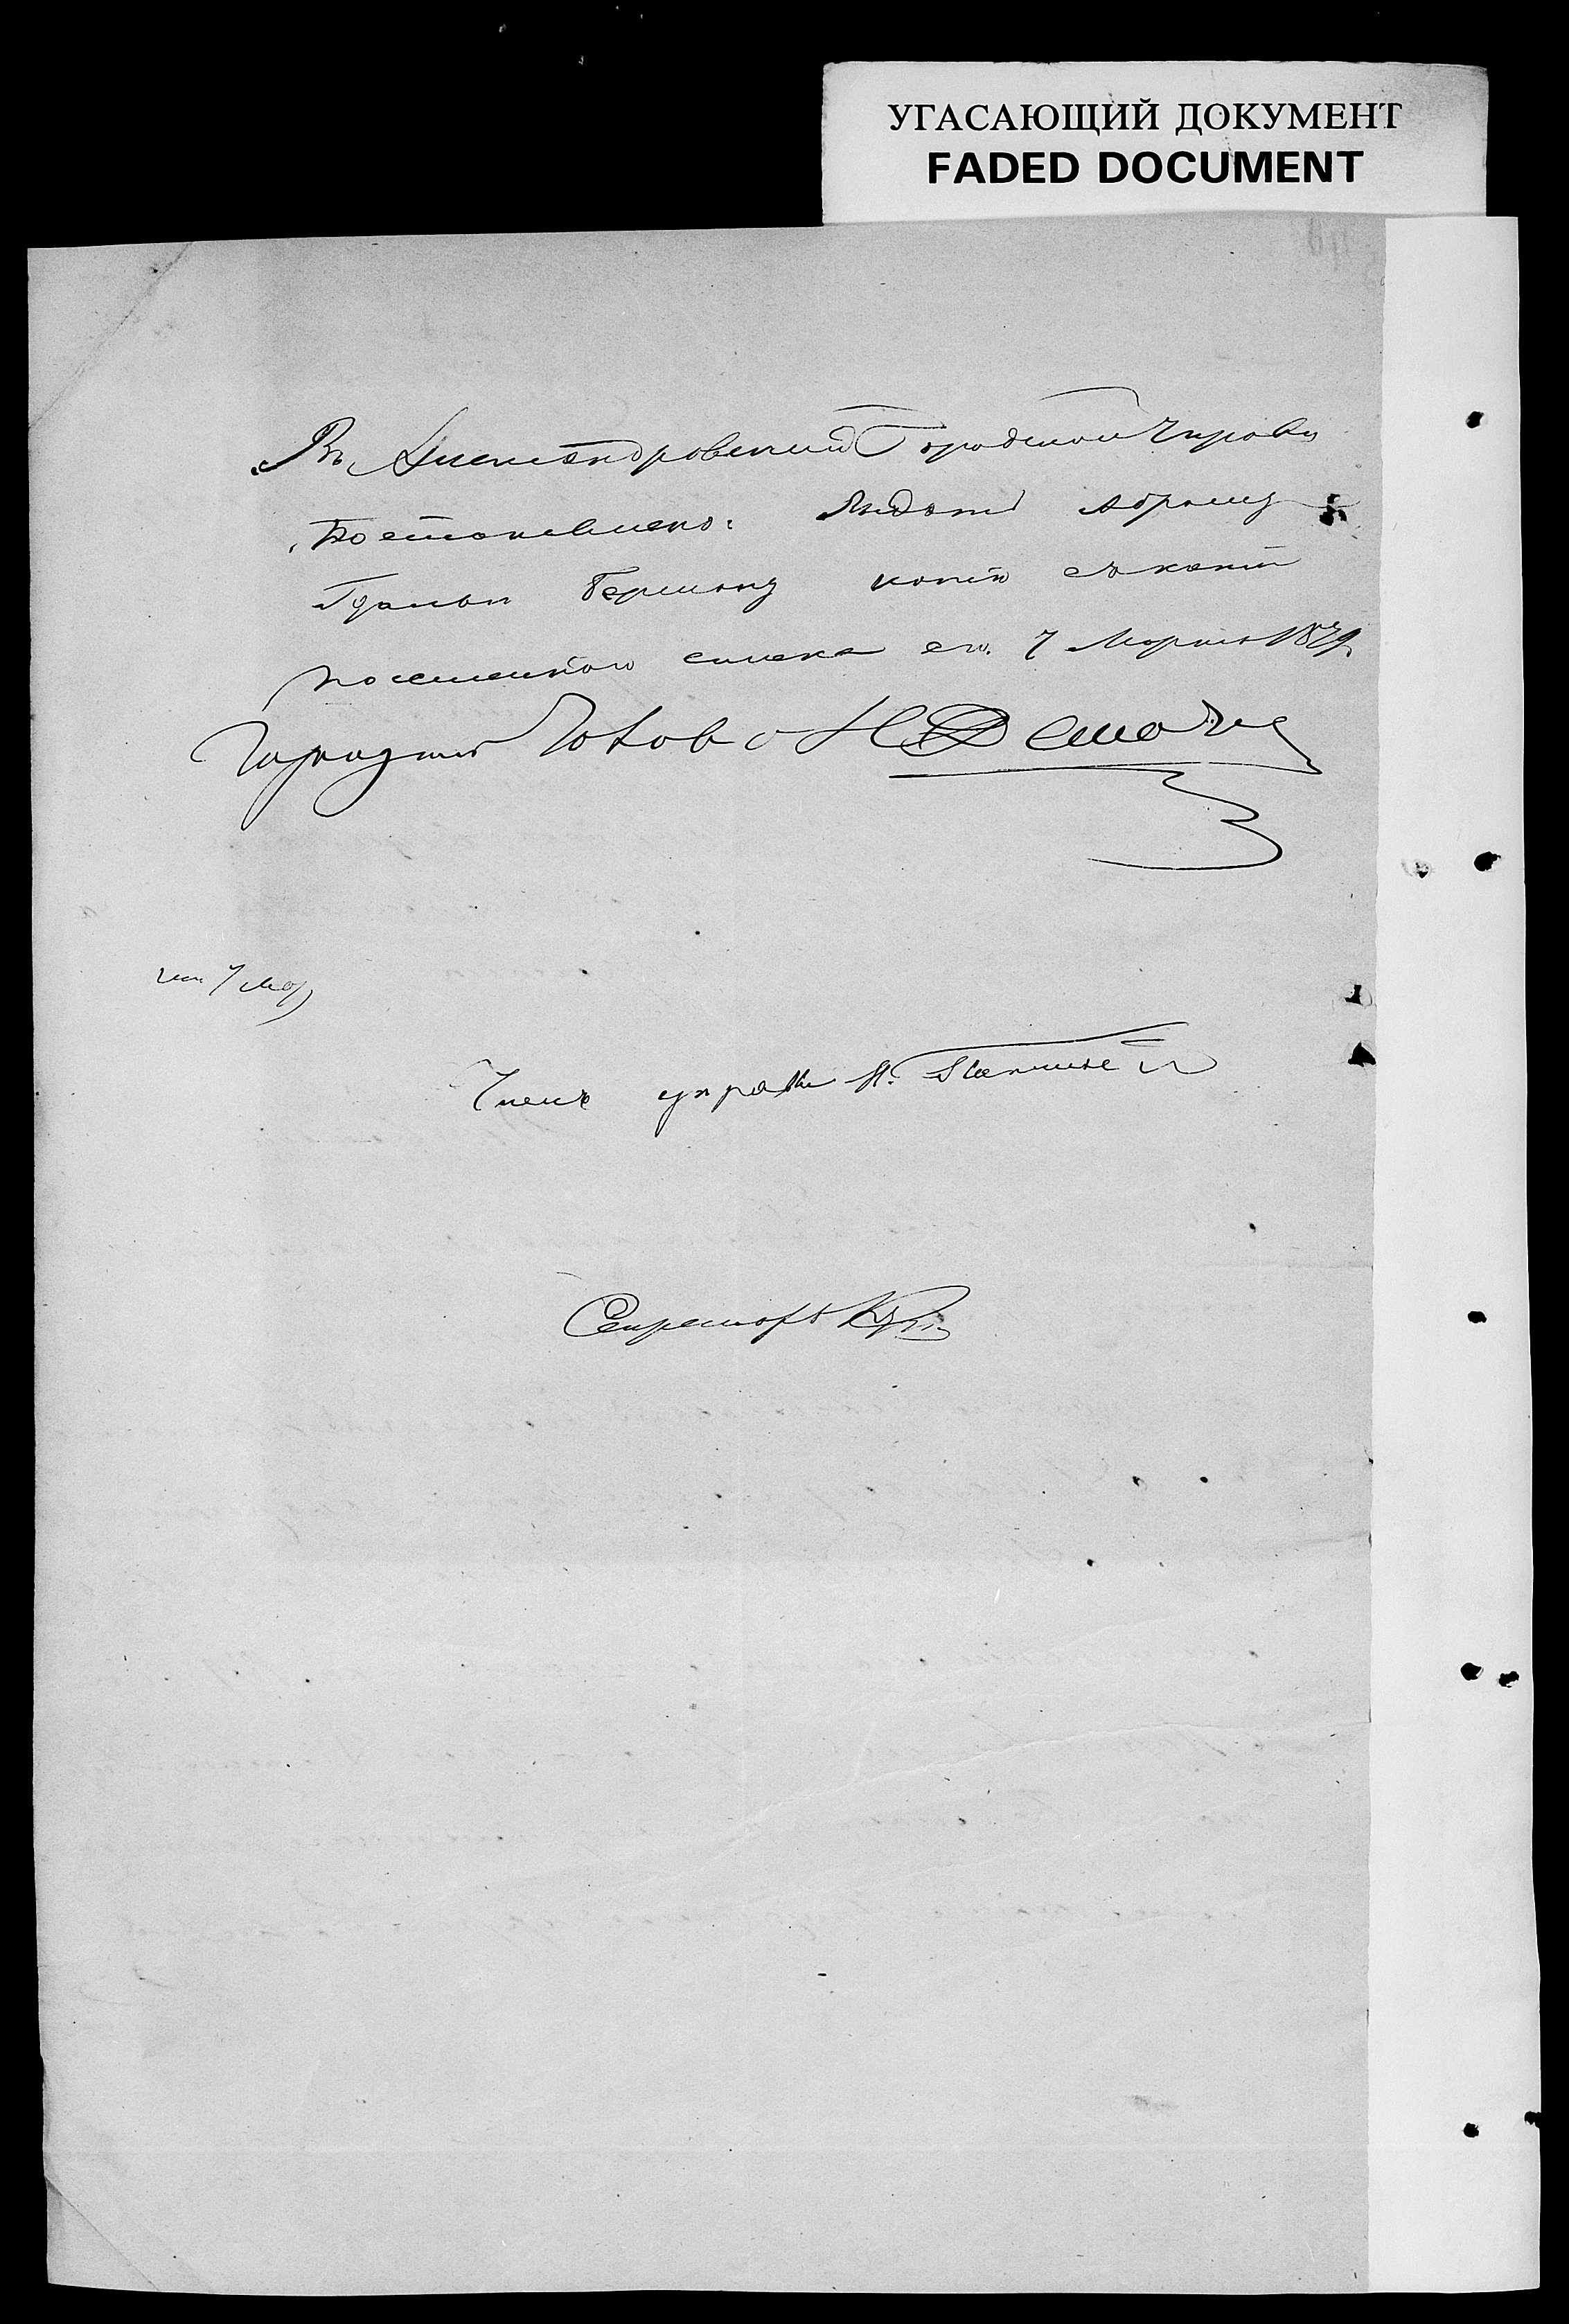 УГАСАЮЩИЙ ДОКУМЕНТ
FADED DOCUMENT
Въ Александровской Городской Управѣ
Постановлено: Выдать Абраму
Берману копію съ
посемейного списка его. 7 Марта 1879
Городской Голова
7 Мар
Членъ управы
Секретарь